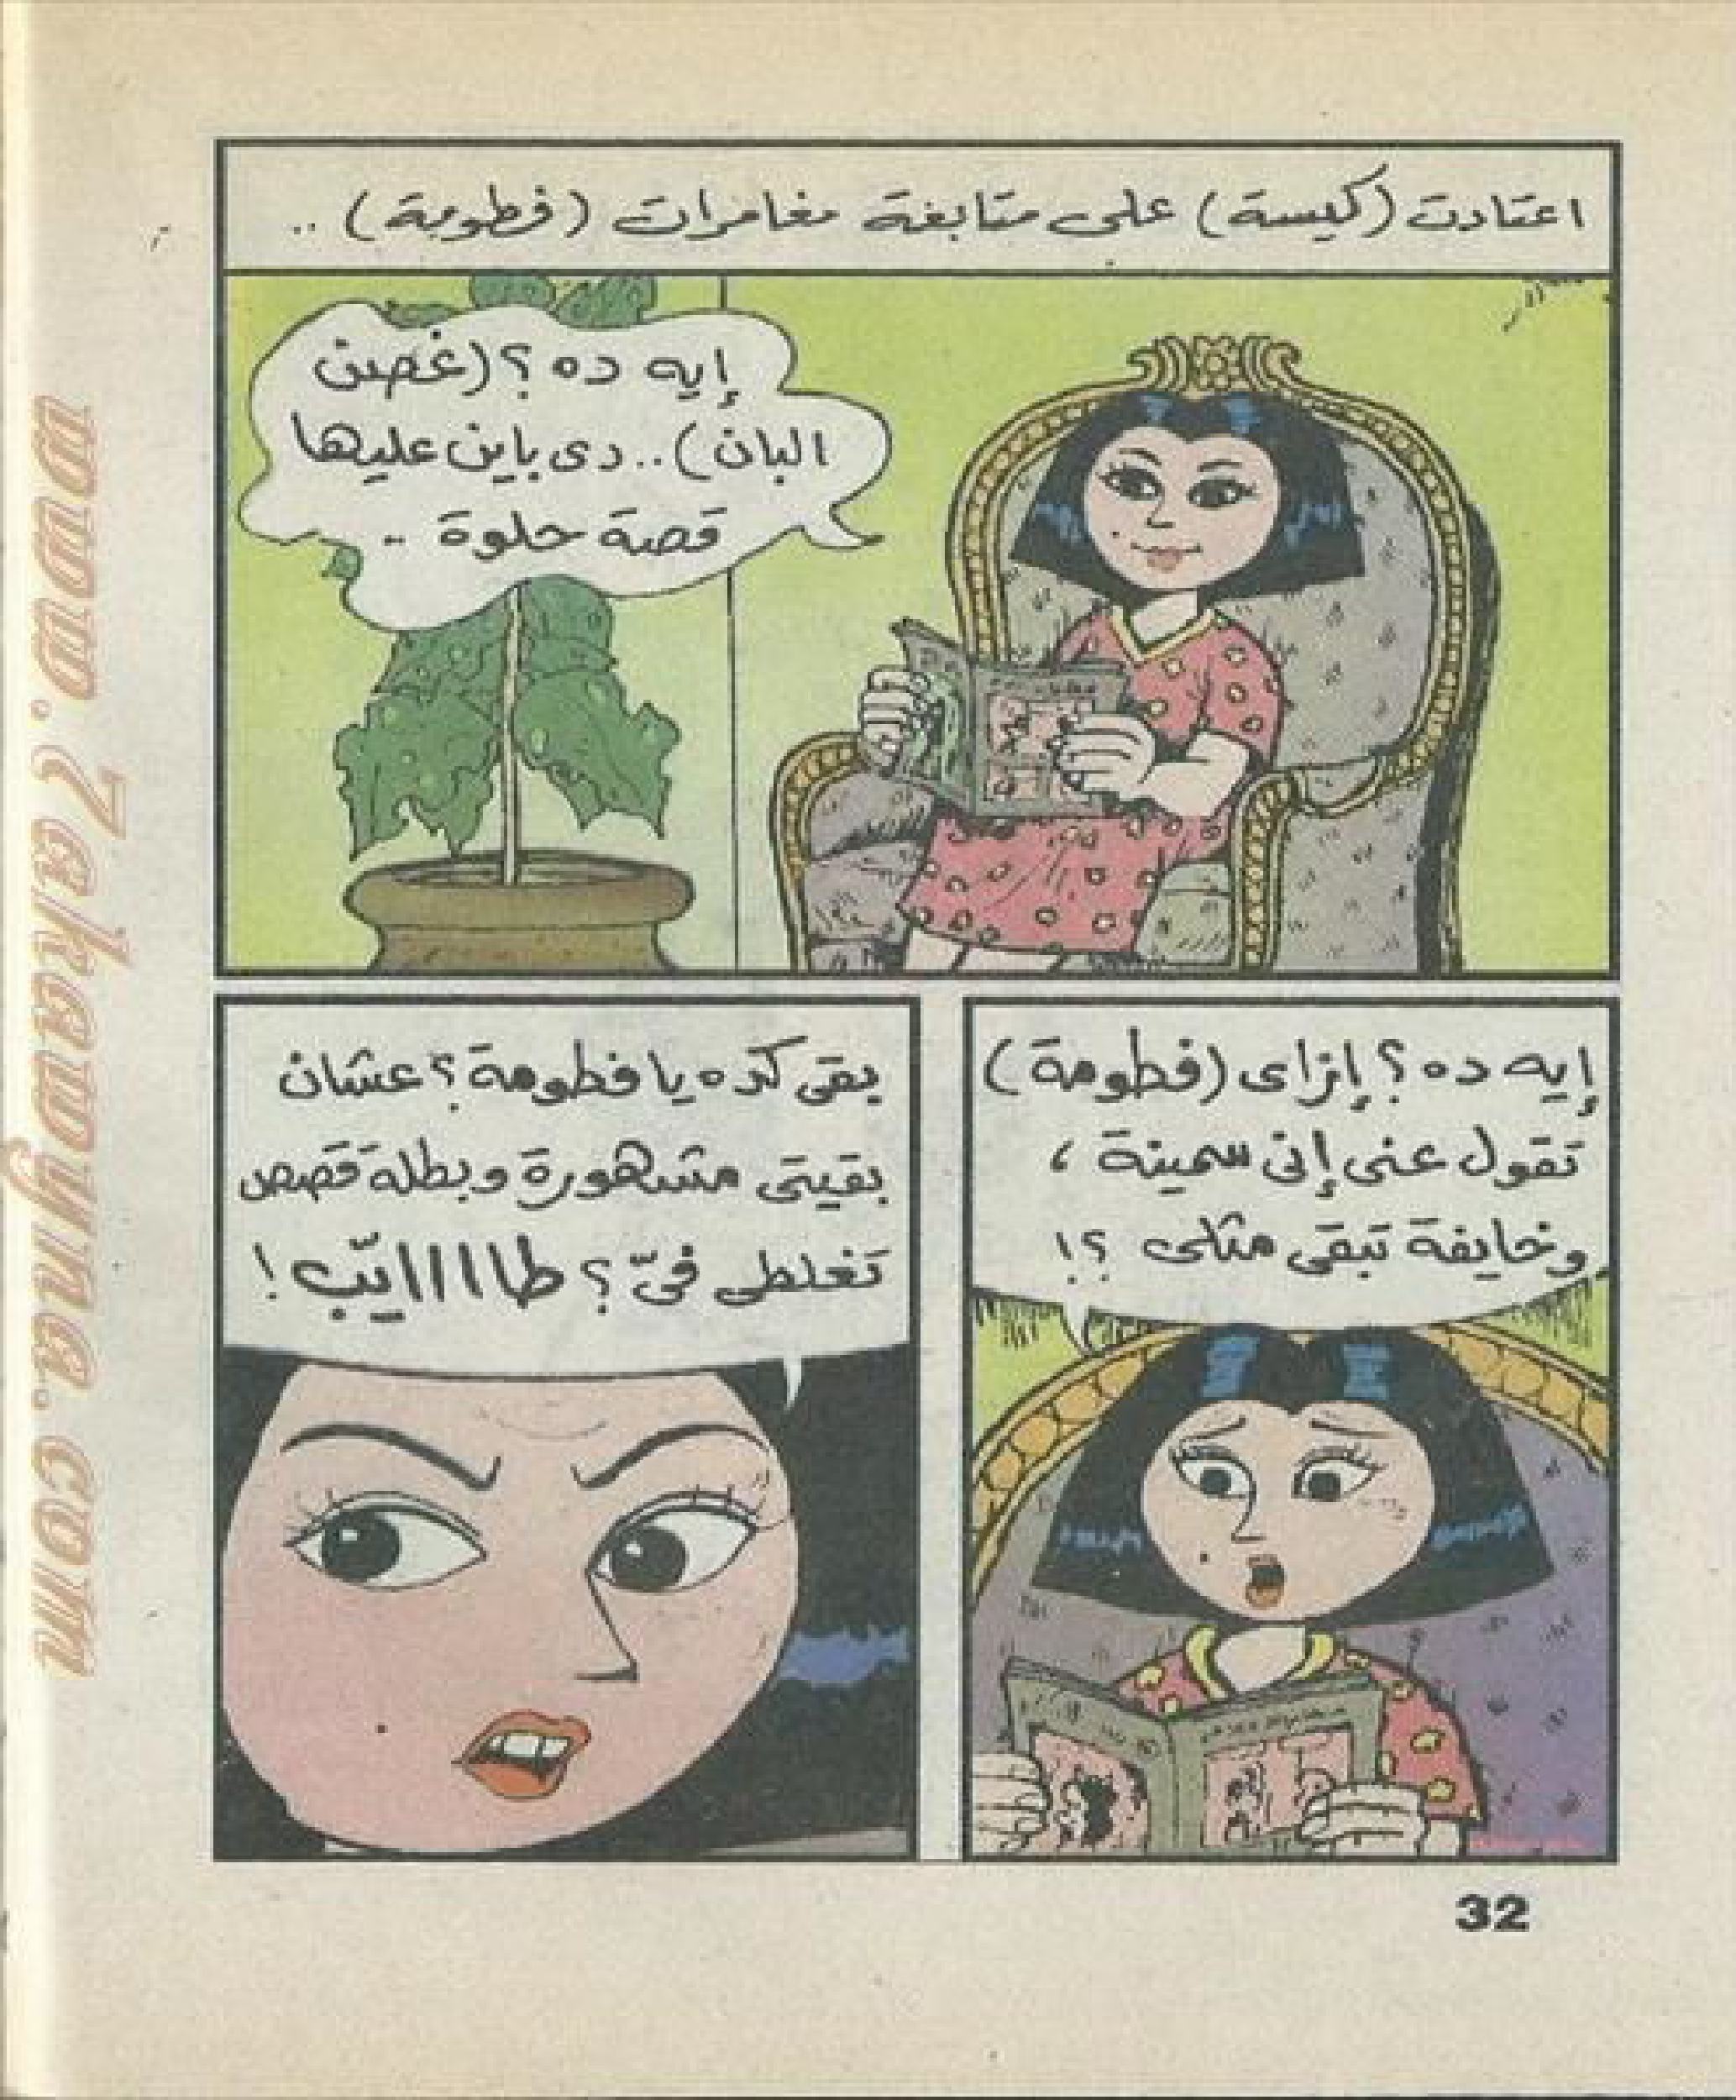 اعتادت (كيسة) على متابعة مغامرات (فطومة) ..
إيه ده ؟ (غصن
البان) .. دى باين عليها
قصة حلوة ..
إيه ده ؟ إزاى (فطومة)
تقول عنى إنى سمينة ،
وخايفة تبقى مثلى ؟!
بقى كده يا فطومة ؟ عشان
بقيتى مشهورة وبطلة قصص
تغلطى فىّ ؟ طاااايّب !
32
www.7ekawyna.com